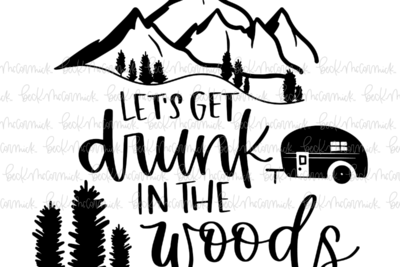 LET'S GET
drunk
IN THE
woods